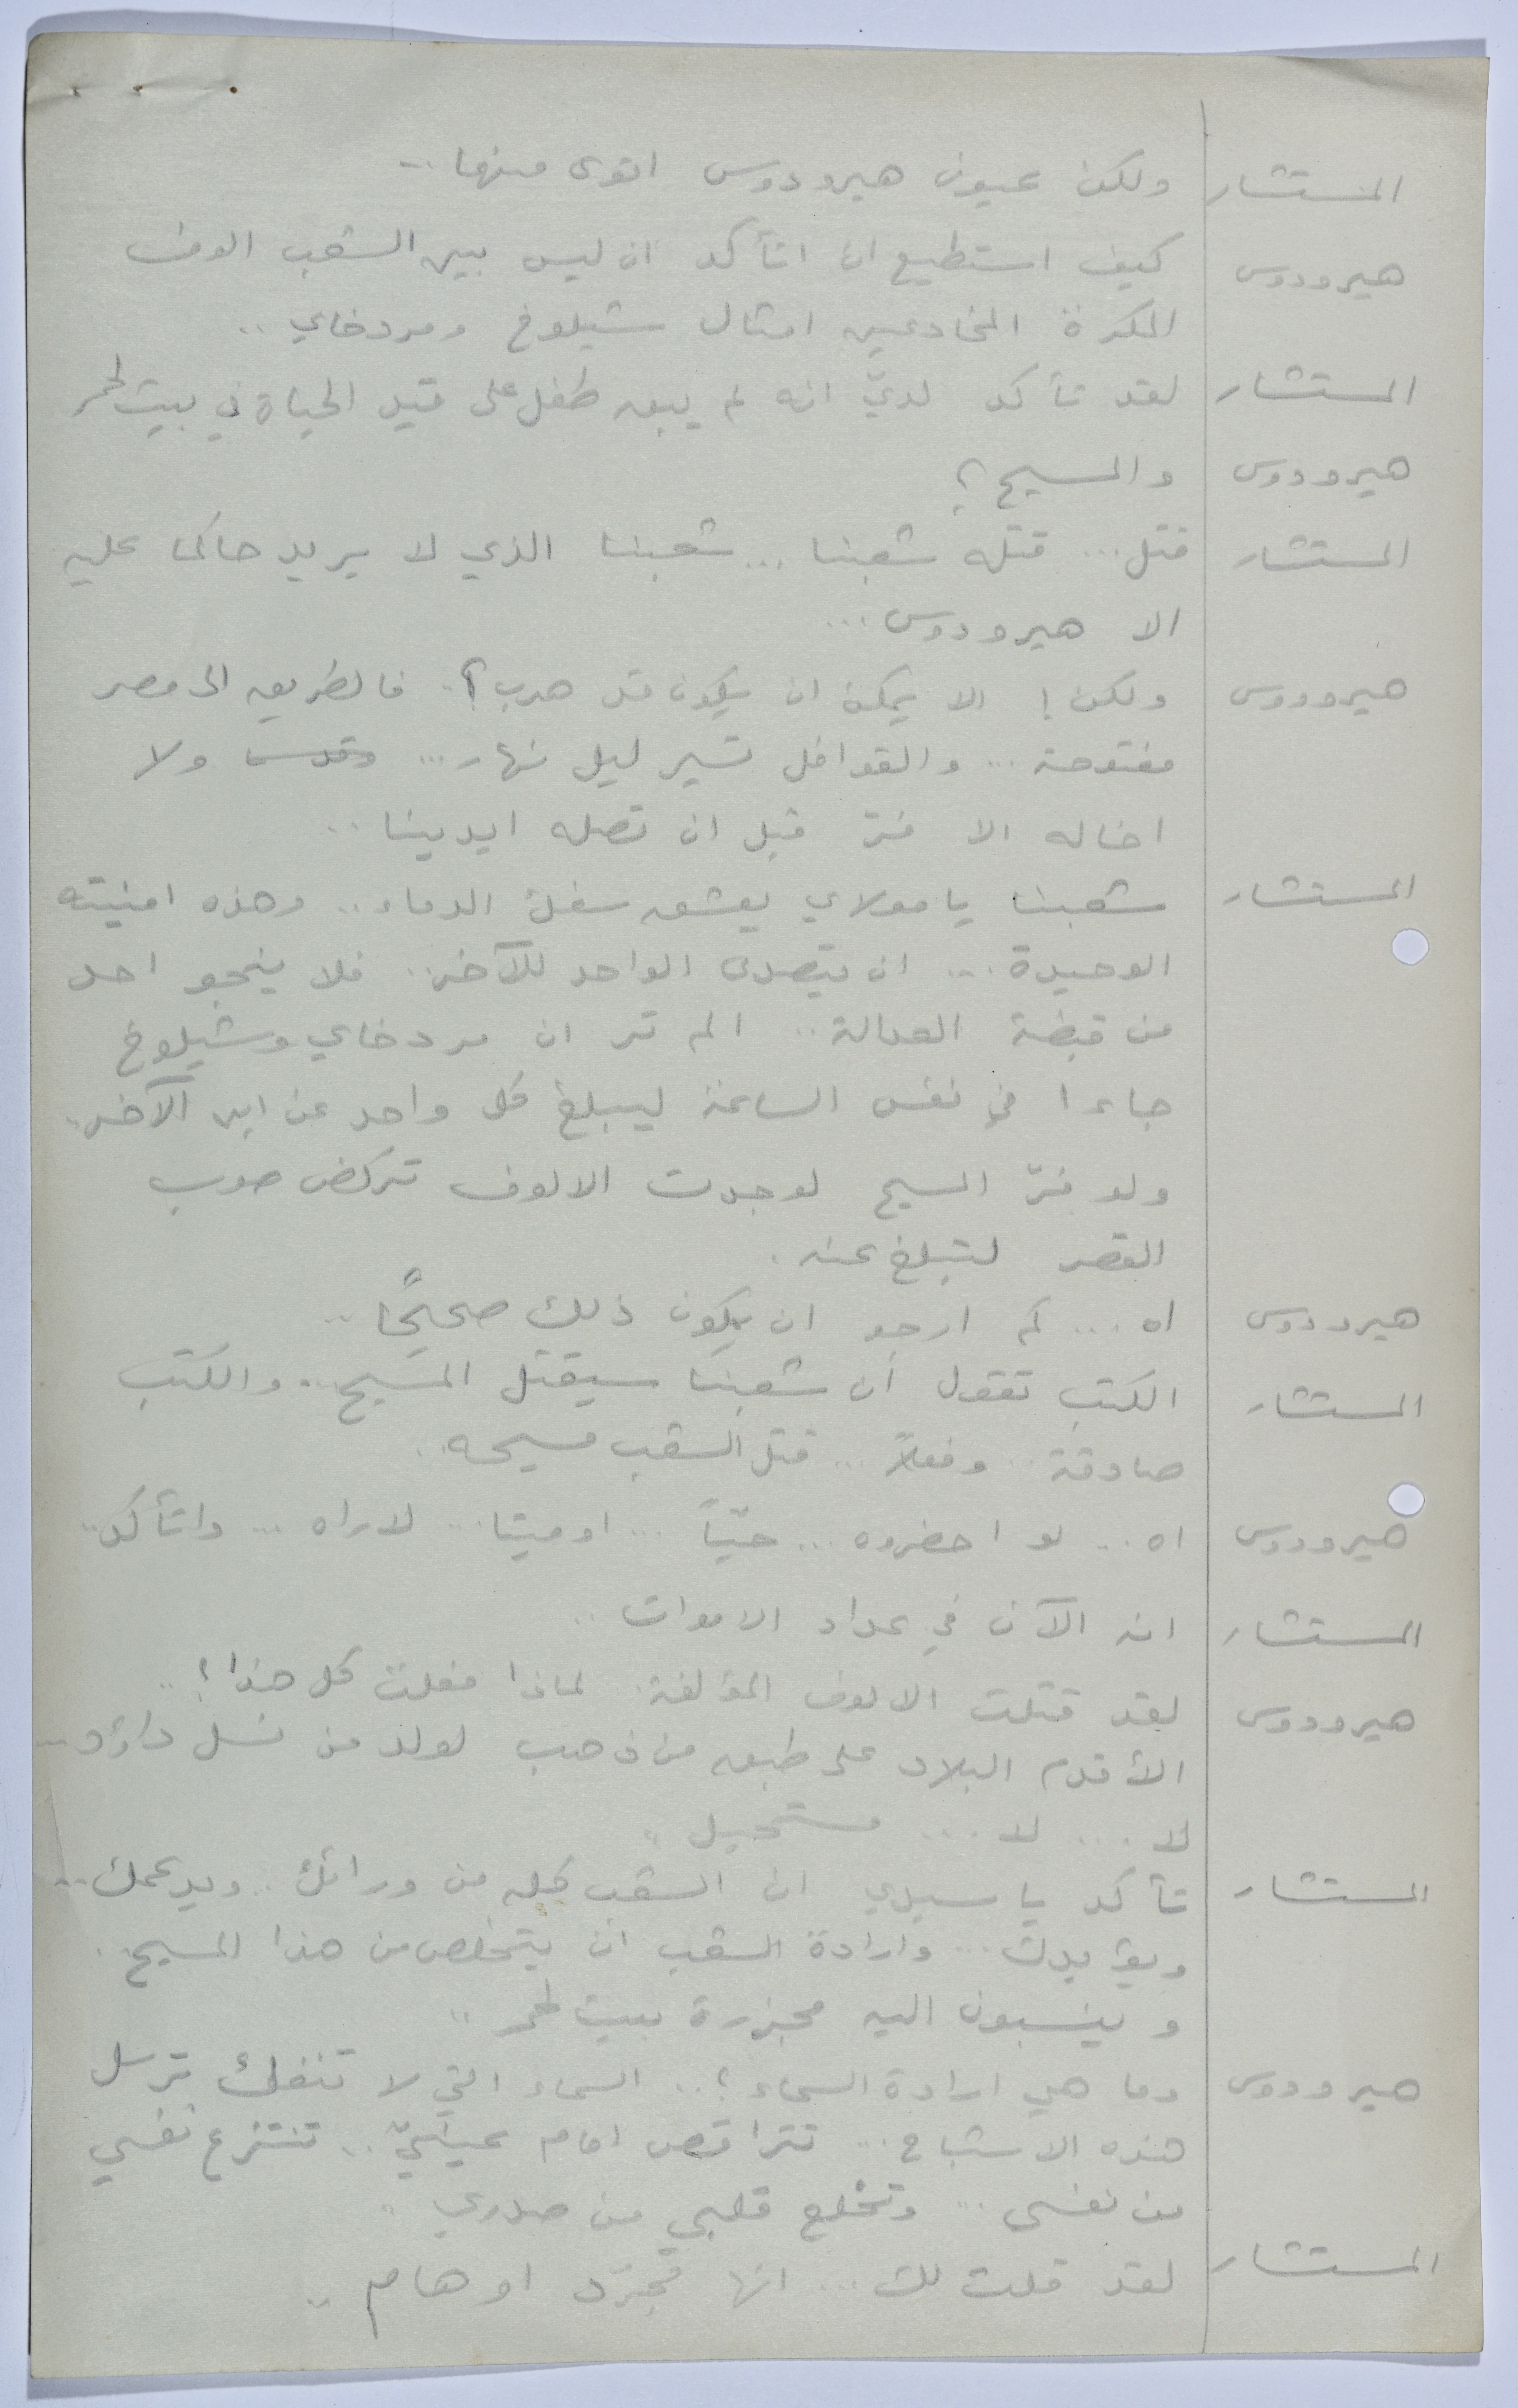 المستشار ولكن عيون هيرودوس اقوى منها ..
هيرودوس كيف استطيع ان اتأكد ان ليس بين الشعب الوف
المكرة المخادعين امثال شيلوخ ومردخاي ..
المستشار لقد تأكد لديّ انه لم يبق طفل على قيد الحياة في بيت لحم
هيرودوس والمسيح ؟
المستشار قتل ... قتله شعبنا ... شعبنا الذي لا يريد حاكما عليه
الا هيرودوس ...
هيرودوس ولكن ! الا يمكن ان يكون قد هرب ؟. فالطريق الى مصر
مفتوحة ... والقوافل تسير ليل نهار ... ولا
اخاله الا فرّ قبل ان تصله ايدينا ..
المستشار شعبنا يا مولاي يعشق سفك الدماء .. وهذه امنيته
الوحيدة ... ان يتصدى الواحد للآخر .. فلا ينجو احد
من قبضة العدالة .. الم تر ان مردخاي وشيلوخ
جاءا في نفس الساعة ليبلغ كل واحد عن ابن الآخر.
ولو فرّ المسيح لوجدت الالوف تركض صوب
القصر لتبلغ عنه .
هيرودوس اه ... كم ارجو ان يكون ذلك صحيحًا ..
المستشار الكتب تقول أن شعبنا سيقتل المسيح .. والكتب
صادقة .. وفعلاً ... قتل الشعب مسيحه ..
هيرودوس اه .. لو احضروه ... حيّاً ... او ميتا ... لاراه ... واتأكد ..
المستشار انه الآن في عداد الاموات ..
هيرودوس لقد قتلت الالوف المؤلفة .. لماذا فعلت كل هذا ؟ ..
الأقدم البلاد على طبق من ذهب لولد من نسل داؤد ..
لا ... لا ... مستحيل ..
المستشار تأكد يا سيدي ان الشعب كله من ورائك .. ويدعمك ..
ويؤيدك ... وارادة الشعب ان يتخلص من هذا المسيح .
وينسبون اليه مجزرة بيت لحم ..
هيرودوس وما هي ارادة السماء ؟ .. السماء التي لا تنفك ترسل
هذه الاشباح ... تتراقص امام عينيّ .. تنتزع نفسي
من نفسي ... وتخلع قلبي من صدري ..
المستشار لقد قلت لك ... انها مجرّد اوهام ..